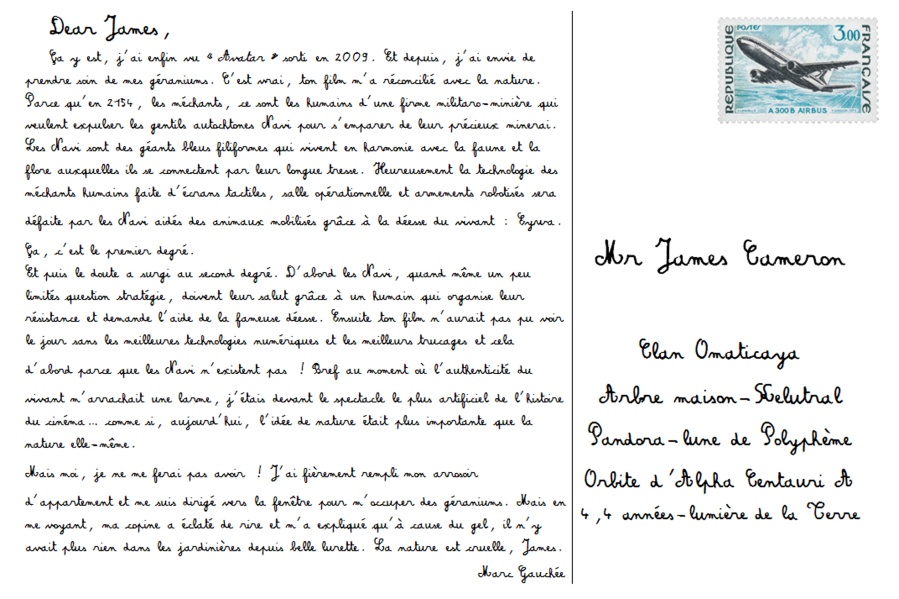 Dear James,
Ça y est, j'ai enfin vu « Avatar » sorti en 2009. Et depuis, j'ai envie de
prendre soin de mes géraniums. C'est vrai, ton film m'a réconcilié avec la nature.
Parce qu'en 2154, les méchants, ce sont les humains d'une firme militaro-minière qui
veulent expulser les gentils autochtones Navi pour s'emparer de leur précieux minerai.
Les Navi sont des géants bleus filiformes qui vivent en harmonie avec la faune et la
flore auxquelles ils se connectent par leur longue tresse. Heureusement la technologie des
méchants humains faite d'écrans tactiles, salle opérationnelle et armements robotisés sera
défaite par les Navi aidés des animaux mobilisés grâce à la déesse du vivant : Eywa.
Ça, c'est le premier degré.
Et puis le doute a surgi au second degré. D'abord les Navi, quand même un peu
limités question stratégie, doivent leur salut grâce à un humain qui organise leur
résistance et demande l'aide de la fameuse déesse. Ensuite ton film n'aurait pas pu voir
le jour sans les meilleures technologies numériques et les meilleurs trucages et cela
d'abord parce que les Navi n'existent pas ! Bref au moment où l'authenticité du
vivant m'arrachait une larme, j'étais devant le spectacle le plus artificiel de l'histoire
du cinéma... comme si, aujourd'hui, l'idée de nature était plus importante que la
nature elle-même.
Mais moi, je ne me ferai pas avoir ! J'ai fièrement rempli mon arrosoir
d'appartement et me suis dirigé vers la fenêtre pour m'occuper des géraniums. Mais en
me voyant, ma copine a éclaté de rire et m'a expliqué qu'à cause du gel, il n'y
avait plus rien dans les jardinières depuis belle lurette. La nature est cruelle, James.
Marc Gauchée
REPUBLIQUE FRANÇAISE
POSTES
3.00
A 300 B AIRBUS
Mr James Cameron
Clan Omaticaya
Arbre maison-Kelutral
Pandora-lune de Polyphème
Orbite d'Alpha Centauri A
4,4 années-lumière de la Terre